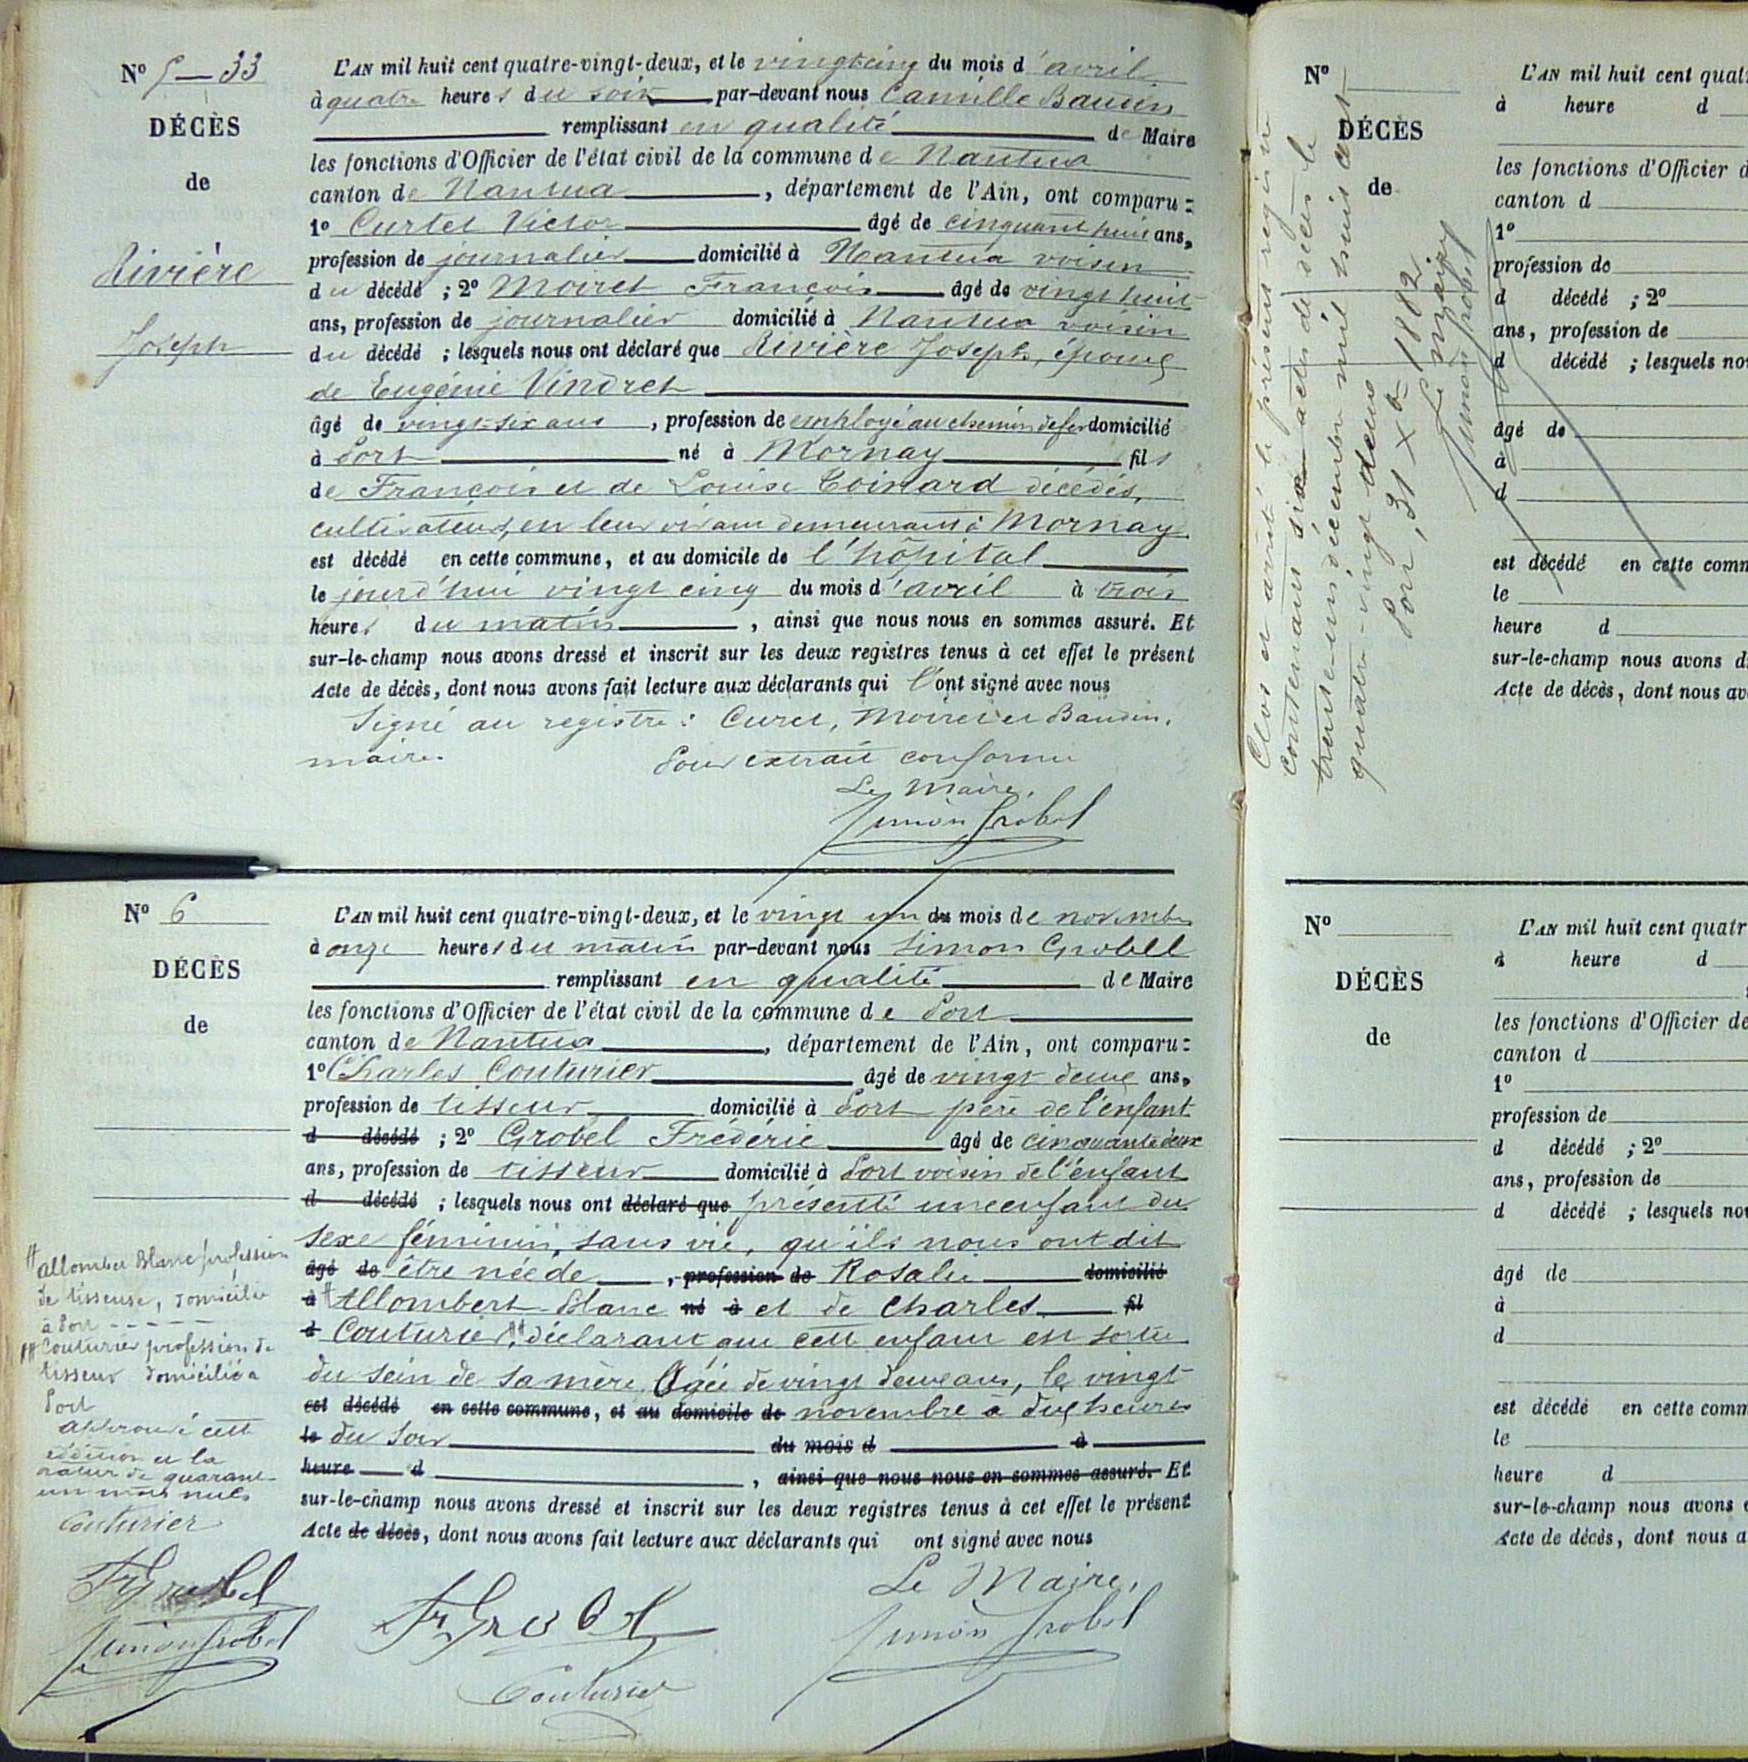 N° 5 — 33
DÉCÈS
de
Rivière
Joseph
L'AN mil huit cent quatre-vingt-deux, et le vingt cinq du mois d'avril
à quatre heures du soir par-devant nous Camille Baudin
remplissant en qualité de Maire
les fonctions d'Officier de l'état civil de la commune de Nantua
canton de Nantua, département de l'Ain, ont comparu :
1° Curtet Victor âgé de cinquant huit ans,
profession de journalier domicilié à Nantua voisin
du décédé ; 2° Moiret François âgé de vingt huit
ans, profession de journalier domicilié à Nantua voisin
du décédé ; lesquels nous ont déclaré que Rivière Joseph, époux
de Eugénie Vindret
âgé de vingt-six ans, profession de employé au chemin de fer domicilié
à Port né à Mornay fils
de François et de Louise Coinard décédés,
cultivateurs, en leur vivant demeurant à Mornay
est décédé en cette commune, et au domicile de l'hôpital
le jourd'hui vingt cinq du mois d'avril à trois
heures du matin, ainsi que nous nous en sommes assuré. Et
sur-le-champ nous avons dressé et inscrit sur les deux registres tenus à cet effet le présent
Acte de décès, dont nous avons fait lecture aux déclarants qui l'ont signé avec nous
Signé au registre : Curtet, Moiret et Baudin,
maire.
Pour extrait conforme
Le Maire,
Simon Grobel
N° 6
DÉCÈS
de
L'AN mil huit cent quatre-vingt-deux, et le vingt un du mois de novembre
à onze heures du matin par-devant nous Simon Grobel
remplissant en qualité de Maire
les fonctions d'Officier de l'état civil de la commune de Port
canton de Nantua, département de l'Ain, ont comparu :
1° Charles Couturier âgé de vingt deux ans,
profession de tisseur domicilié à Port père de l'enfant
d décédé ; 2° Grobel Frédéric âgé de cinquante deux
ans, profession de tisseur domicilié à Port voisin de l'enfant
d décédé ; lesquels nous ont déclaré que présenté une enfant du
sexe féminin, sans vie, qu'ils nous ont dit
âgé de être née de, profession de Rosalie domicilié
à # Allombert Blanc né à et de Charles fil
d Couturier, ## déclarant que cette enfant est sortie
du sein de sa mère Agée de vingt deux ans, le vingt
est décédé en cette commune, et au domicile de novembre à dix heures
le du soir du mois d à
heure d, ainsi que nous nous en sommes assuré. Et
sur-le-champ nous avons dressé et inscrit sur les deux registres tenus à cet effet le présent
Acte de décès, dont nous avons fait lecture aux déclarants qui ont signé avec nous
# allombert Blanc profession
de tisseuse, domicilié
à Port
## Couturier profession de
tisseur domicilié à
Port
approuvé cette
addition et la
rature de quarante
un mots nuls
Couturier
Fr Grobel
Simon Grobel
Fr Grobel
Couturier
Le Maire,
Simon Grobel
Clos et arrêté le présent registre
contenant six actes de décès le
trente-un décembre mil huit cent
quatre-vingt-deux
Port, 31 Xbre 1882
Le maire
Simon Grobel
N°
DÉCÈS
de
L'AN mil huit cent quat
à heure d
les fonctions d'Officier d
canton d
1°
profession de
d décédé ; 2°
ans, profession de
d décédé ; lesquels nou
âgé de
à
d
est décédé en cette comm
le
heure d
sur-le-champ nous avons d
Acte de décès, dont nous av
N°
DÉCÈS
de
L'AN mil huit cent quatr
à heure d
les fonctions d'Officier de
canton d
1°
profession de
d décédé ; 2°
ans, profession de
d décédé ; lesquels nou
âgé de
à
d
est décédé en cette comm
le
heure d
sur-le-champ nous avons
Acte de décès, dont nous a